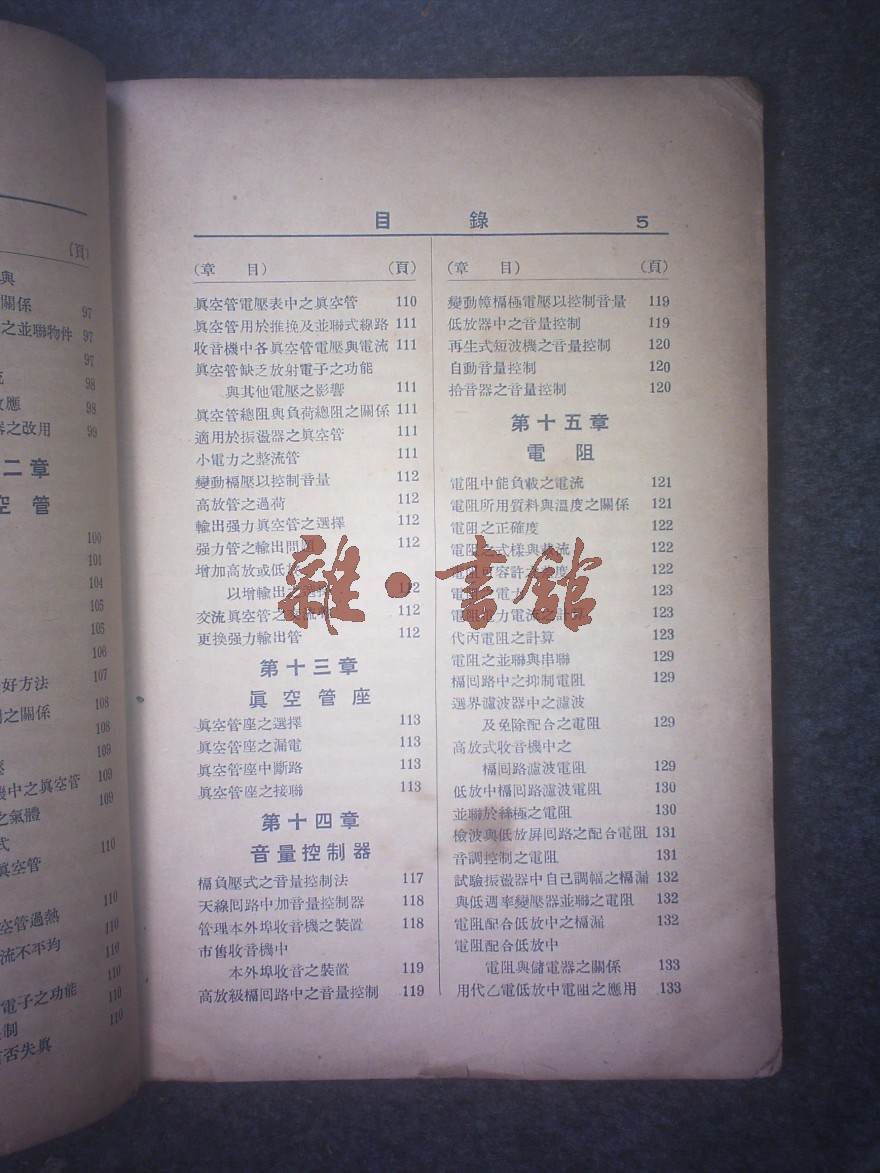 (頁)
與
關係 97
之並聯物件 97
97
98
效應 98
器之改用 99
二章
空管
100
101
104
105
105
106
好方法 107
之關係 108
108
109
機中之眞空管 109
之氣體 109
式
眞空管 110
110
空管過熱 110
流不平均 110
110
電子之功能 110
制 110
否失眞
目錄 5
(章目) (頁)
眞空管電壓表中之眞空管 110
眞空管用於推挽及並聯式線路 111
收音機中各眞空管電壓與電流 111
眞空管缺乏放射電子之功能
與其他電壓之影響 111
眞空管總阻與負荷總阻之關係 111
適用於振盪器之眞空管 111
小電力之整流管 111
變動柵壓以控制音量 112
高放管之過荷 112
輸出强力眞空管之選擇 112
强力管之輸出問題 112
增加高放或低放
以增輸出之選擇 112
交流眞空管之 112
更換强力輸出管 112
第十三章
眞空管座
眞空管座之選擇 113
眞空管座之漏電 113
眞空管座中斷路 113
眞空管座之接聯 113
第十四章
音量控制器
柵負壓式之音量控制法 117
天線囘路中加音量控制器 118
管理本外埠收音機之裝置 118
市售收音機中
本外埠收音之裝置 119
高放級柵囘路中之音量控制 119
(章目) (頁)
變動幛柵極電壓以控制音量 119
低放器中之音量控制 119
再生式短波機之音量控制 120
自動音量控制 120
拾音器之音量控制 120
第十五章
電阻
電阻中能負載之電流 121
電阻所用質料與溫度之關係 121
電阻之正確度 122
電阻之式樣與載流 122
電阻可容許之 度 122
電阻之電 123
電阻電力電流之計算 123
代丙電阻之計算 123
電阻之並聯與串聯 129
柵囘路中之抑制電阻 129
選界濾波器中之濾波
及免除配合之電阻 129
高放式收音機中之
柵囘路濾波電阻 129
低放中柵囘路濾波電阻 130
並聯於絲極之電阻 130
檢波與低放屏囘路之配合電阻 131
音調控制之電阻 131
試驗振盪器中自己調幅之柵漏 132
與低週率變壓器並聯之電阻 132
電阻配合低放中之柵漏 132
電阻配合低放中
電阻與儲電器之關係 133
用代乙電低放中電阻之應用 133
雜·書館